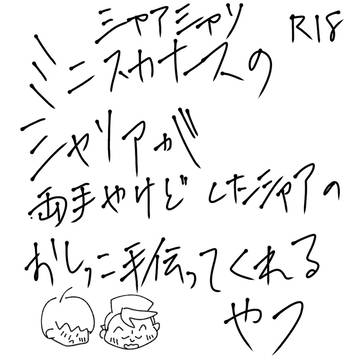 シャアシャリ R18
ミニスカナースの
シャリアが
両手やけどしたシャアの
おしっこ手伝ってくれる
やつ